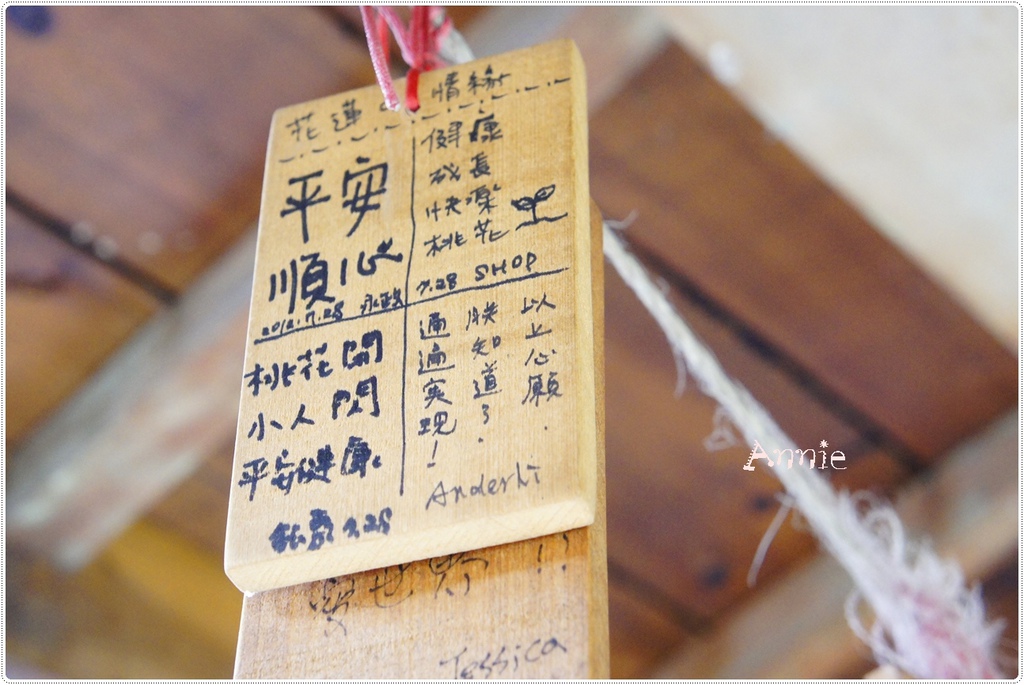 花蓮の情緣
平安
順心
2012.7.28 永政
健康
成長
快樂
桃花
7.28 SHOP
桃花開
小人閃
平安健康
7.28
以上心願.
朕知道了.
通通実現!
Anderhi
!!
Jessica
Annie